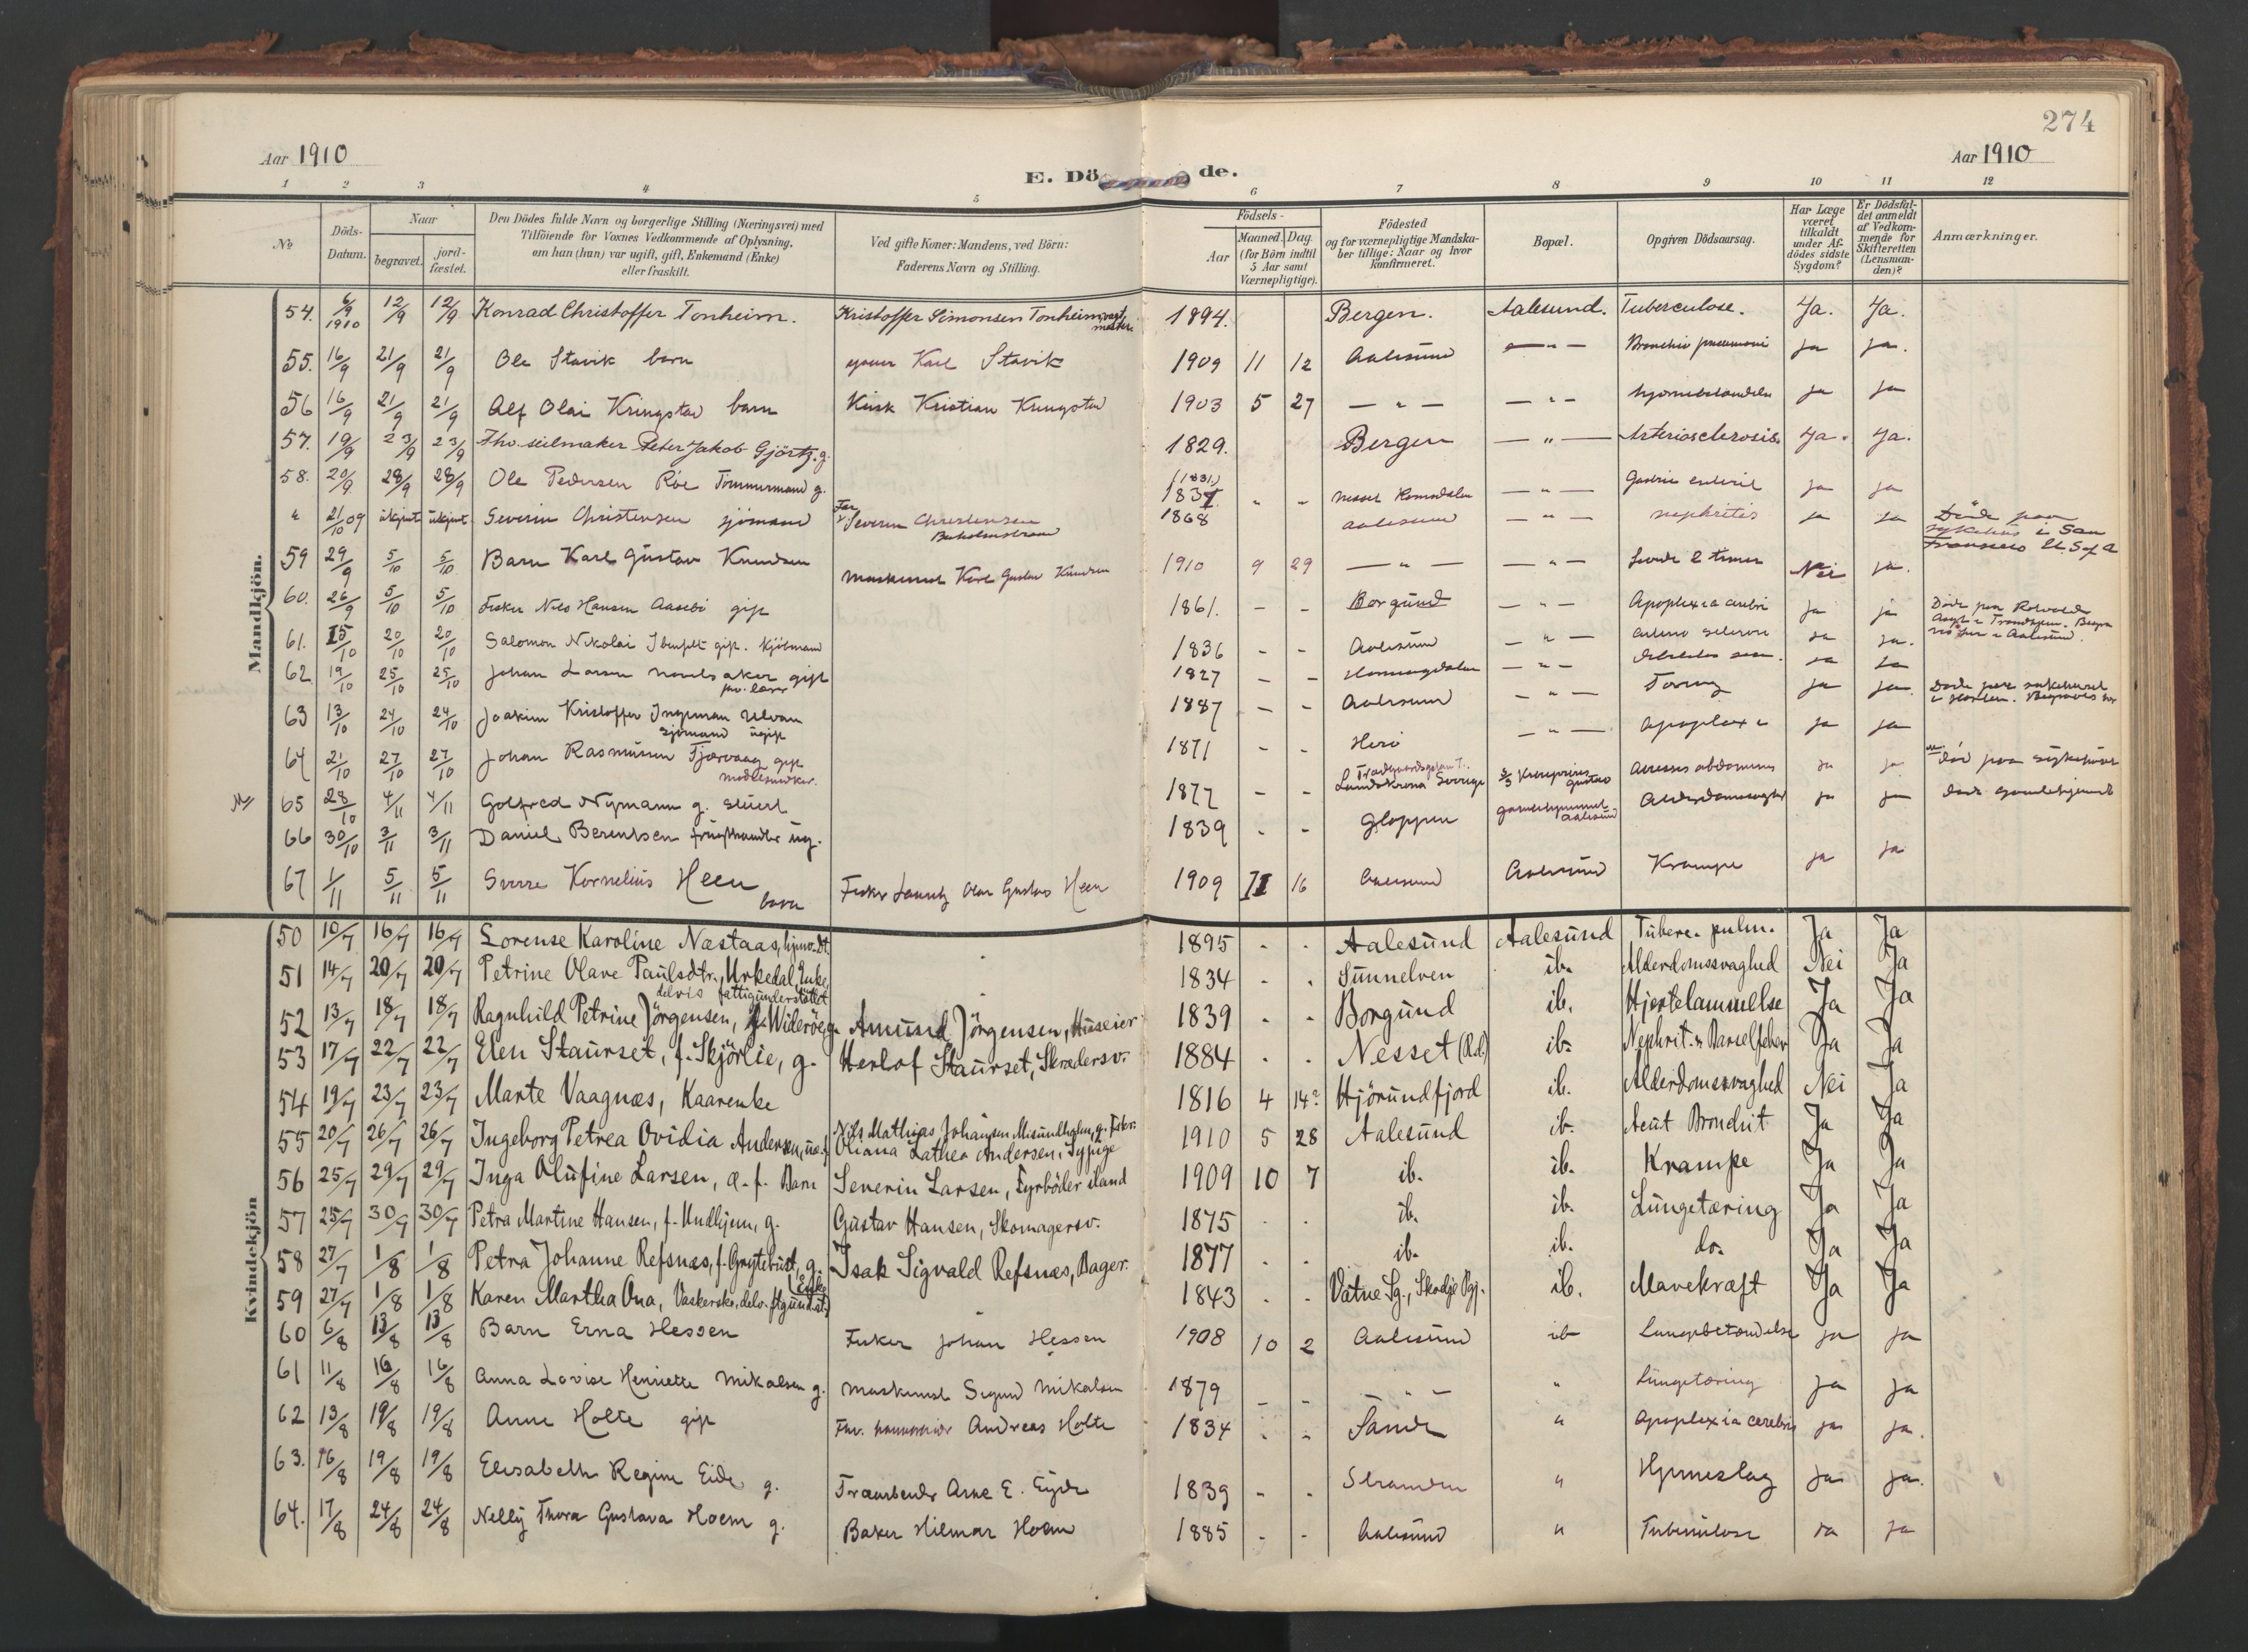 274
Aar 1910
Aar 1910
E. Dö de.
1 2 3 4 5 6 7 8 9 10 11 12
№
Döds-Datum.
Naar
begravet.
jord-fæstet.
Den Dödes fulde Navn og borgerlige Stilling (Næringsvei) med
Tilföiende for Voxnes Vedkommende af Oplysning,
om han (hun) var ugift, gift, Enkemand (Enke)
eller fraskilt.
Ved gifte Koner: Mandens, ved Börn:
Faderens Navn og Stilling.
Födsels-
Aar
Maaned. Dag.
(for Börn indtil
5 Aar samt
Værnepligtige).
Födested
og for værnepligtige Mandska-
ber tillige: Naar og hvor
konfirmeret.
Bopæl.
Opgiven Dödsaarsag.
Har Læge
været
tilkaldt
under Af-
dödes sidste
Sygdom?
Er Dödsfal-
det anmeldt
af Vedkom-
mende for
Skifteretten
(Lensman-
den)?
Anmærkninger.
Mandkjön.
54. 6/9 1910 12/9 12/9 Konrad Christoffer Tonheim. Kristoffer Simonsen Tonheim, 1894. Bergen. Aalesund. Tuberculose. Ja. Ja.
55. 16/9 21/9 21/9 Ole Stavik barn Karl Stavik 1909 11 12 Aalesund — " — ja ja.
56 16/9 21/9 21/9 Alf Olai Kringstad barn Kusk Kristian Kringstad 1903 5 27 — " — — " — ja ja
57. 19/9 23/9 23/9 Fhv. seilmaker Peter Jakob Gjörtz. g. 1829. Bergen — " — Arteriosclerosis Ja. Ja.
58. 20/9 28/9 28/9 Ole Pedersen Röe Tömmermand g. (1831) 1831 " " Nesset Romsdalen — " — ja ja
" 21/10 09 ukjent ukjent Severin Christensen sjömand Far Severin Christensen 1868 Aalesund — " — nephritis ja ja Döde paa
sykehus i San
Francisco U.S. of A
59 29/9 5/10 5/10 Barn Karl Gustav Knudsen Maskinist Karl Gustav Knudsen 1910 9 29 — " — — " — levede 2 timer Nei ja.
60. 26/9 5/10 5/10 Fisker Nils Hansen Aasebö gift 1861. - - Borgund — " — Apoplexia cerebri ja ja
61. 15/10 20/10 20/10 Salomon Nikolai gift. Kjöbmand 1836 - - Aalesund — " — ja ja.
62 19/10 25/10 25/10 Johan Larsen gift 1827 - - — " — ja ja
63 13/10 24/10 24/10 Joakim Kristoffer Ingeman Ulvan
sjömand ugift 1887 - - Aalesund — " — ja ja.
64 21/10 27/10 27/10 Johan Rasmusen Tjærvaag gift 1871 - - Herö — " — Apoplexi ja ja
65 28/10 4/11 4/11 Golfred Nymann g. stuert 1877 - - Landskrona Sverige Kronprins Gustav ja ja död paa sykehuset
66 30/10 3/11 3/11 Daniel Berentsen ug. 1839 - - Gloppen gamlehjemmet Aalesund ja ja döde gamlehjemmet
67 1/11 5/11 5/11 Sverre Kornelius Heen barn Fisker Lauritz Olai Gustav Heen 1909 11 16 Aalesund Aalesund Krampe ja ja
Kvindekjön
50 10/7 16/7 16/7 Lorense Karoline Næstaas, hjmv. Dt. 1895 - - Aalesund Aalesund Tuberc. pulm. Ja Ja
51 14/7 20/7 20/7 Petrine Olave Paulsdtr. Urkedal, Enke,
delvis fattigunderstöttet 1834 - - Sunnelven ib. Alderdomssvaghed Nei Ja
52 13/7 18/7 18/7 Ragnhild Petrine Jörgensen, f. Wideröe g. Amund Jörgensen, Huseier 1839 - - Borgund ib. Hjertelammelse Ja Ja
53 17/7 22/7 22/7 Elen Staurset, f. Skjörlie, g. Herlof Staurset, Skrædersv. 1884 - - Nesset (R.d.) ib. Nephrit. & Barselfeber Ja Ja
54 19/7 23/7 23/7 Marte Vaagnæs, Kaarenke 1816 4 14? Hjörundfjord ib. Alderdomssvaghed Nei Ja
55 20/7 26/7 26/7 Ingeborg Petrea Ovidia Andersen, u.æ.f. Nils Mathias Johansen Misundholm, g. Fisker.
Oliana Lathea Andersen, Sypige 1910 5 28 Aalesund ib. Acut Bronchit Ja Ja
56 25/7 29/7 29/7 Inga Olufine Larsen, æ. f. Barn Severin Larsen, Fyrböder iland 1909 10 7 ib. ib. Krampe Ja Ja
57 25/7 30/7 30/7 Petra Martine Hansen, f. Undhjem, g. Gustav Hansen, Skomagersv. 1875 - - ib. ib. Lungetæring Ja Ja
58 27/7 1/8 1/8 Petra Johanne Refsnæs, f. Grytebust, g. Isak Sigvald Refsnæs, Bager. 1877 - - ib. ib. do. Ja Ja
59 27/7 1/8 1/8 Karen Martha Ona, Vaskerske, delv. ftgundst. (Enke) 1843 - - Vatne Sg., Skodje Pgj. ib. Mavekræft Ja Ja
60 6/8 13/8 13/8 Barn Erna Hessen Fisker Johan Hessen 1908 10 2 Aalesund ib Lungebetændelse ja ja
61 11/8 16/8 16/8 Anna Lovise Henriette Mikalsen g. Maskinist Sigurd Mikalsen 1879 - - — " — " Lungetæring ja ja
62 13/8 19/8 19/8 Anne Holte gift Fhv. Andreas Holte 1834 - - Sande " Apoplexia cerebri ja ja.
63. 16/8 19/8 19/8 Elisabeth Regine Eide g. Træarbeider Arne E. Eyde 1839 - - Stranden " Hjerneslag ja ja.
64. 17/8 24/8 24/8 Nelly Thora Gustava Hoem g. Baker Hilmar Hoem 1885 - - Aalesund " Tuberculose ja ja